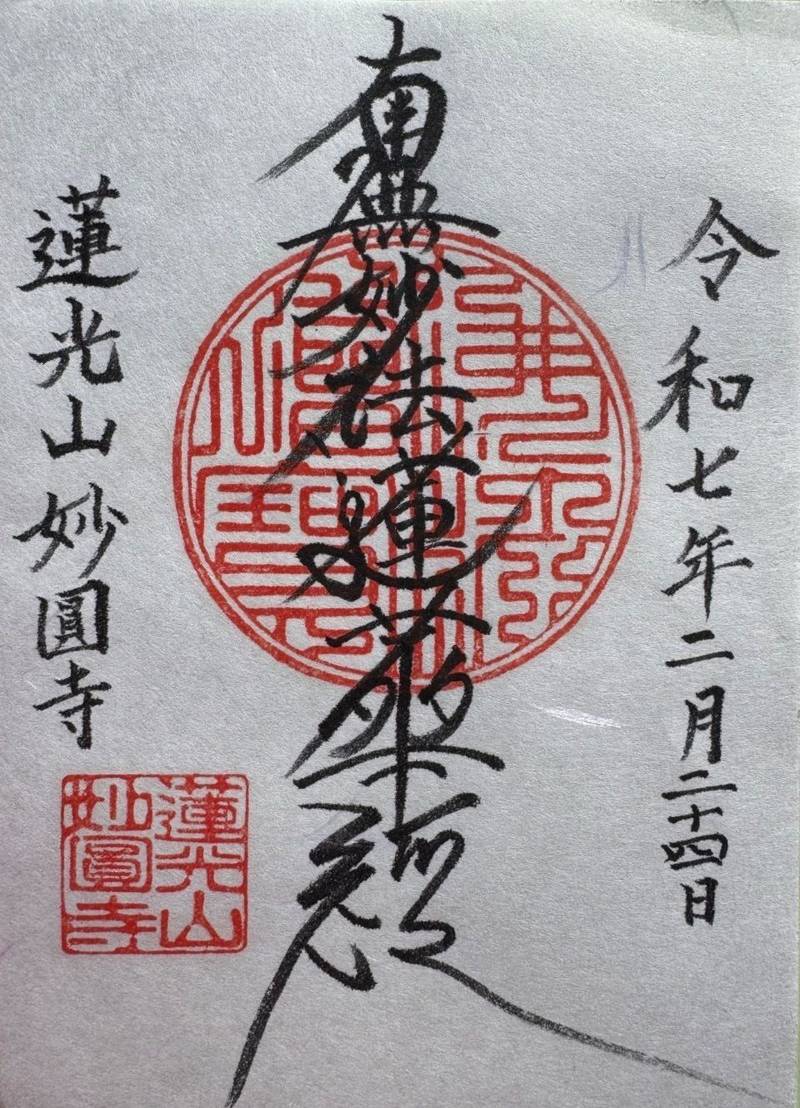 令和七年二月二十四日
南無妙法蓮華経
蓮光山妙圓寺
蓮光山
妙圓寺